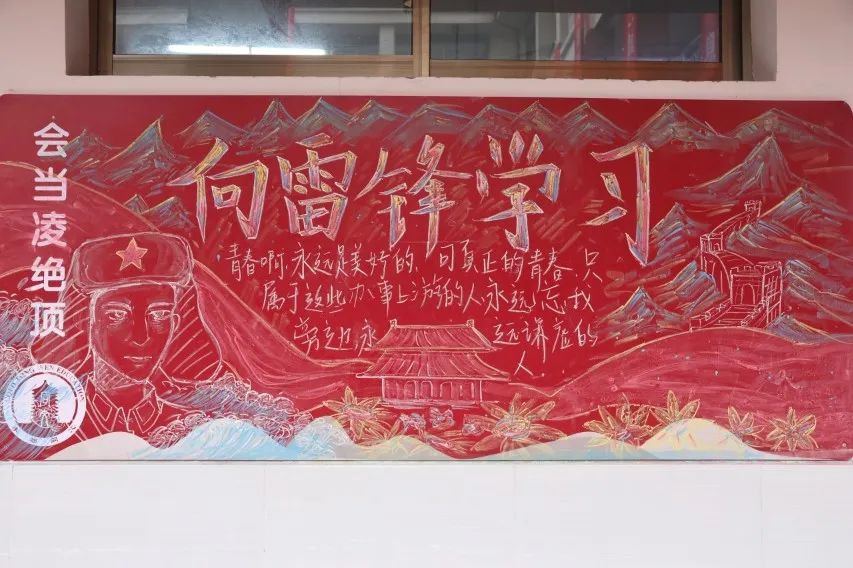 会当凌绝顶
向雷锋学习
青春啊,永远是美好的,可真正的青春,只
属于这些力争上游的人永远忘我
劳动,永远谦虚的
人